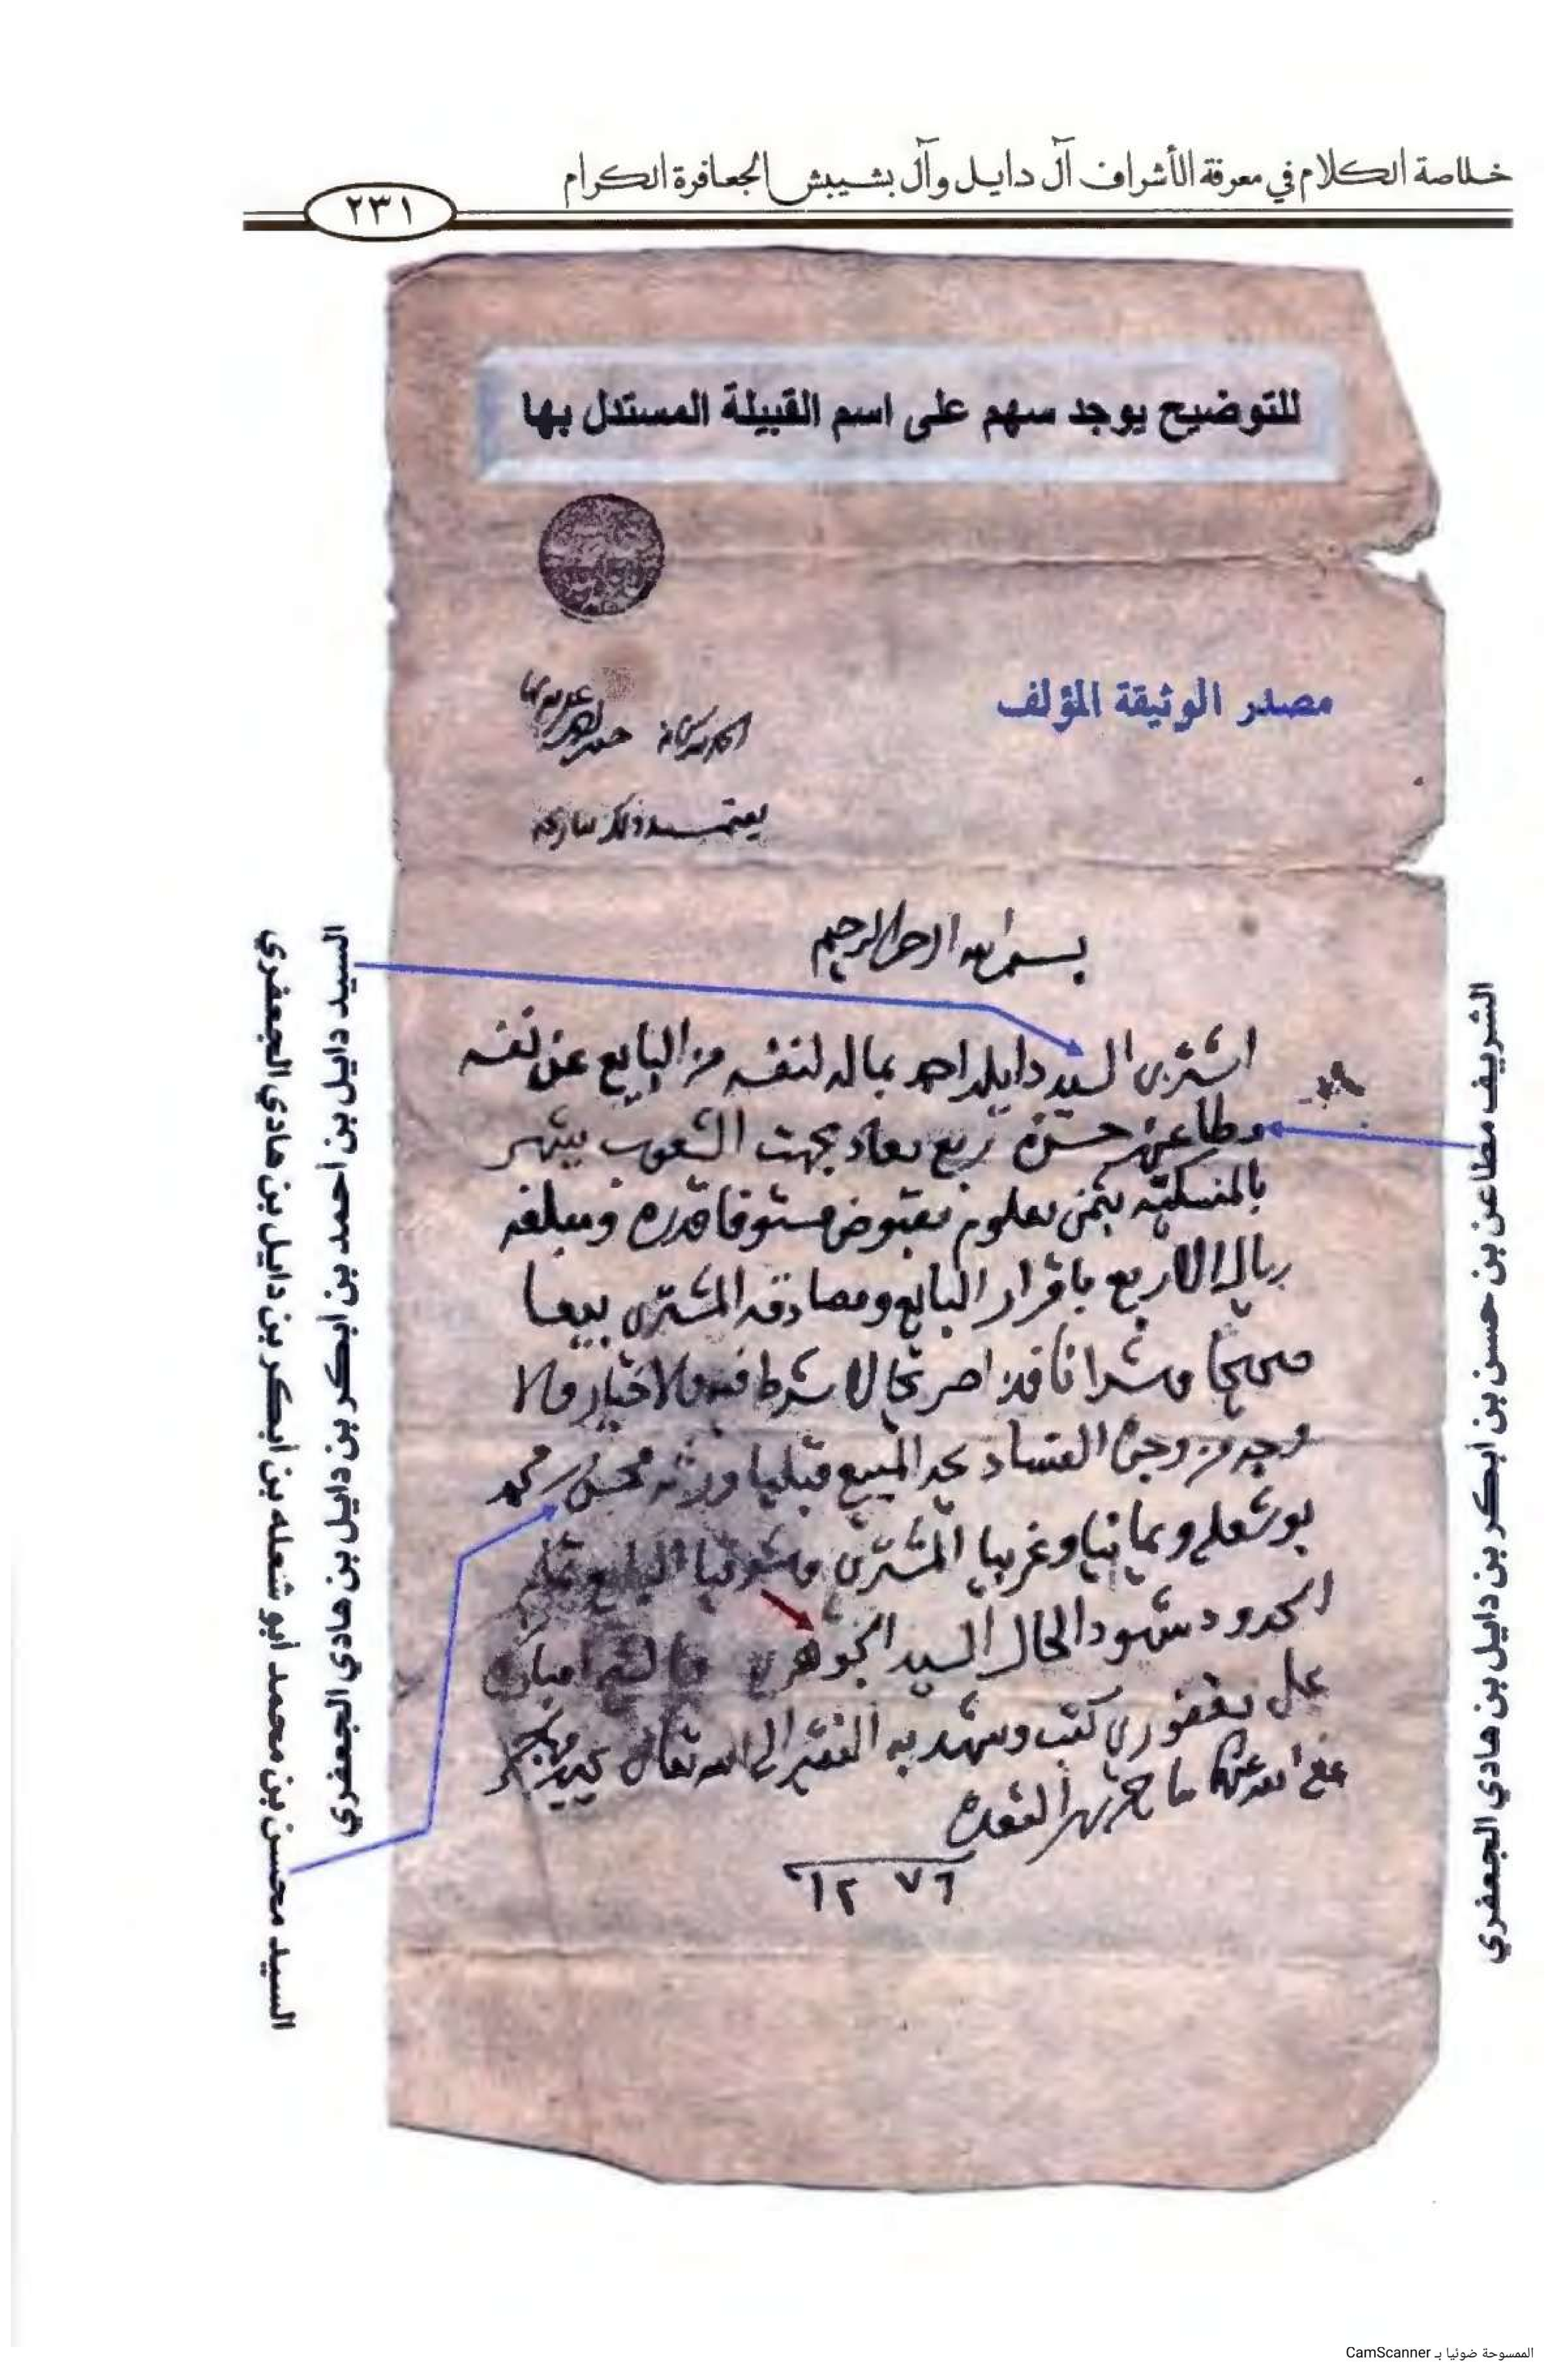 خلاصة الكلام في معرفة الأشراف آل دايل وآل بشيبش الجعافرة الكرام
٢٣١
للتوضيح يوجد سهم على اسم القبيلة المستدل بها
مصدر الوثيقة المؤلف
الحمد لله
يعتمد ذلك
بسم الله الرحمن الرحيم
اشترى السيد دايل احمد بماله لنفسه من البايع عن نفسه
مطاعن حسن ربع معاد بجهت الشعوب يشهر
بثمن معلوم مقبوض مستوفا قدره ومبلغه
ريال الا ربع باقرار البايع ومصادقه المشتري بيعا
صحيحا وشرا نافذا صريحا لا شرط فيه ولا خيار ولا
وجه من وجوه الفساد يحد المبيع قبليا ورثه محسن محمد
بوشعله ويمانيا وغربيا المشتري وشرقيا البايع
الحدود شهود الحال السيد الجوهري
علي كتب وشهد به الفقير الى الله تعالى
عفى الله عنهما شهر القعده
١٢٧٦
السيد دايل بن أحمد بن أبكر بن دايل بن هادي الجعفري
السيد محسن بن محمد أبو شعله بن أبكر بن دايل بن هادي الجعفري
الشريف مطاعن بن حسن بن أبكر بن دايل بن هادي الجعفري
الممسوحة ضوئيا بـ CamScanner